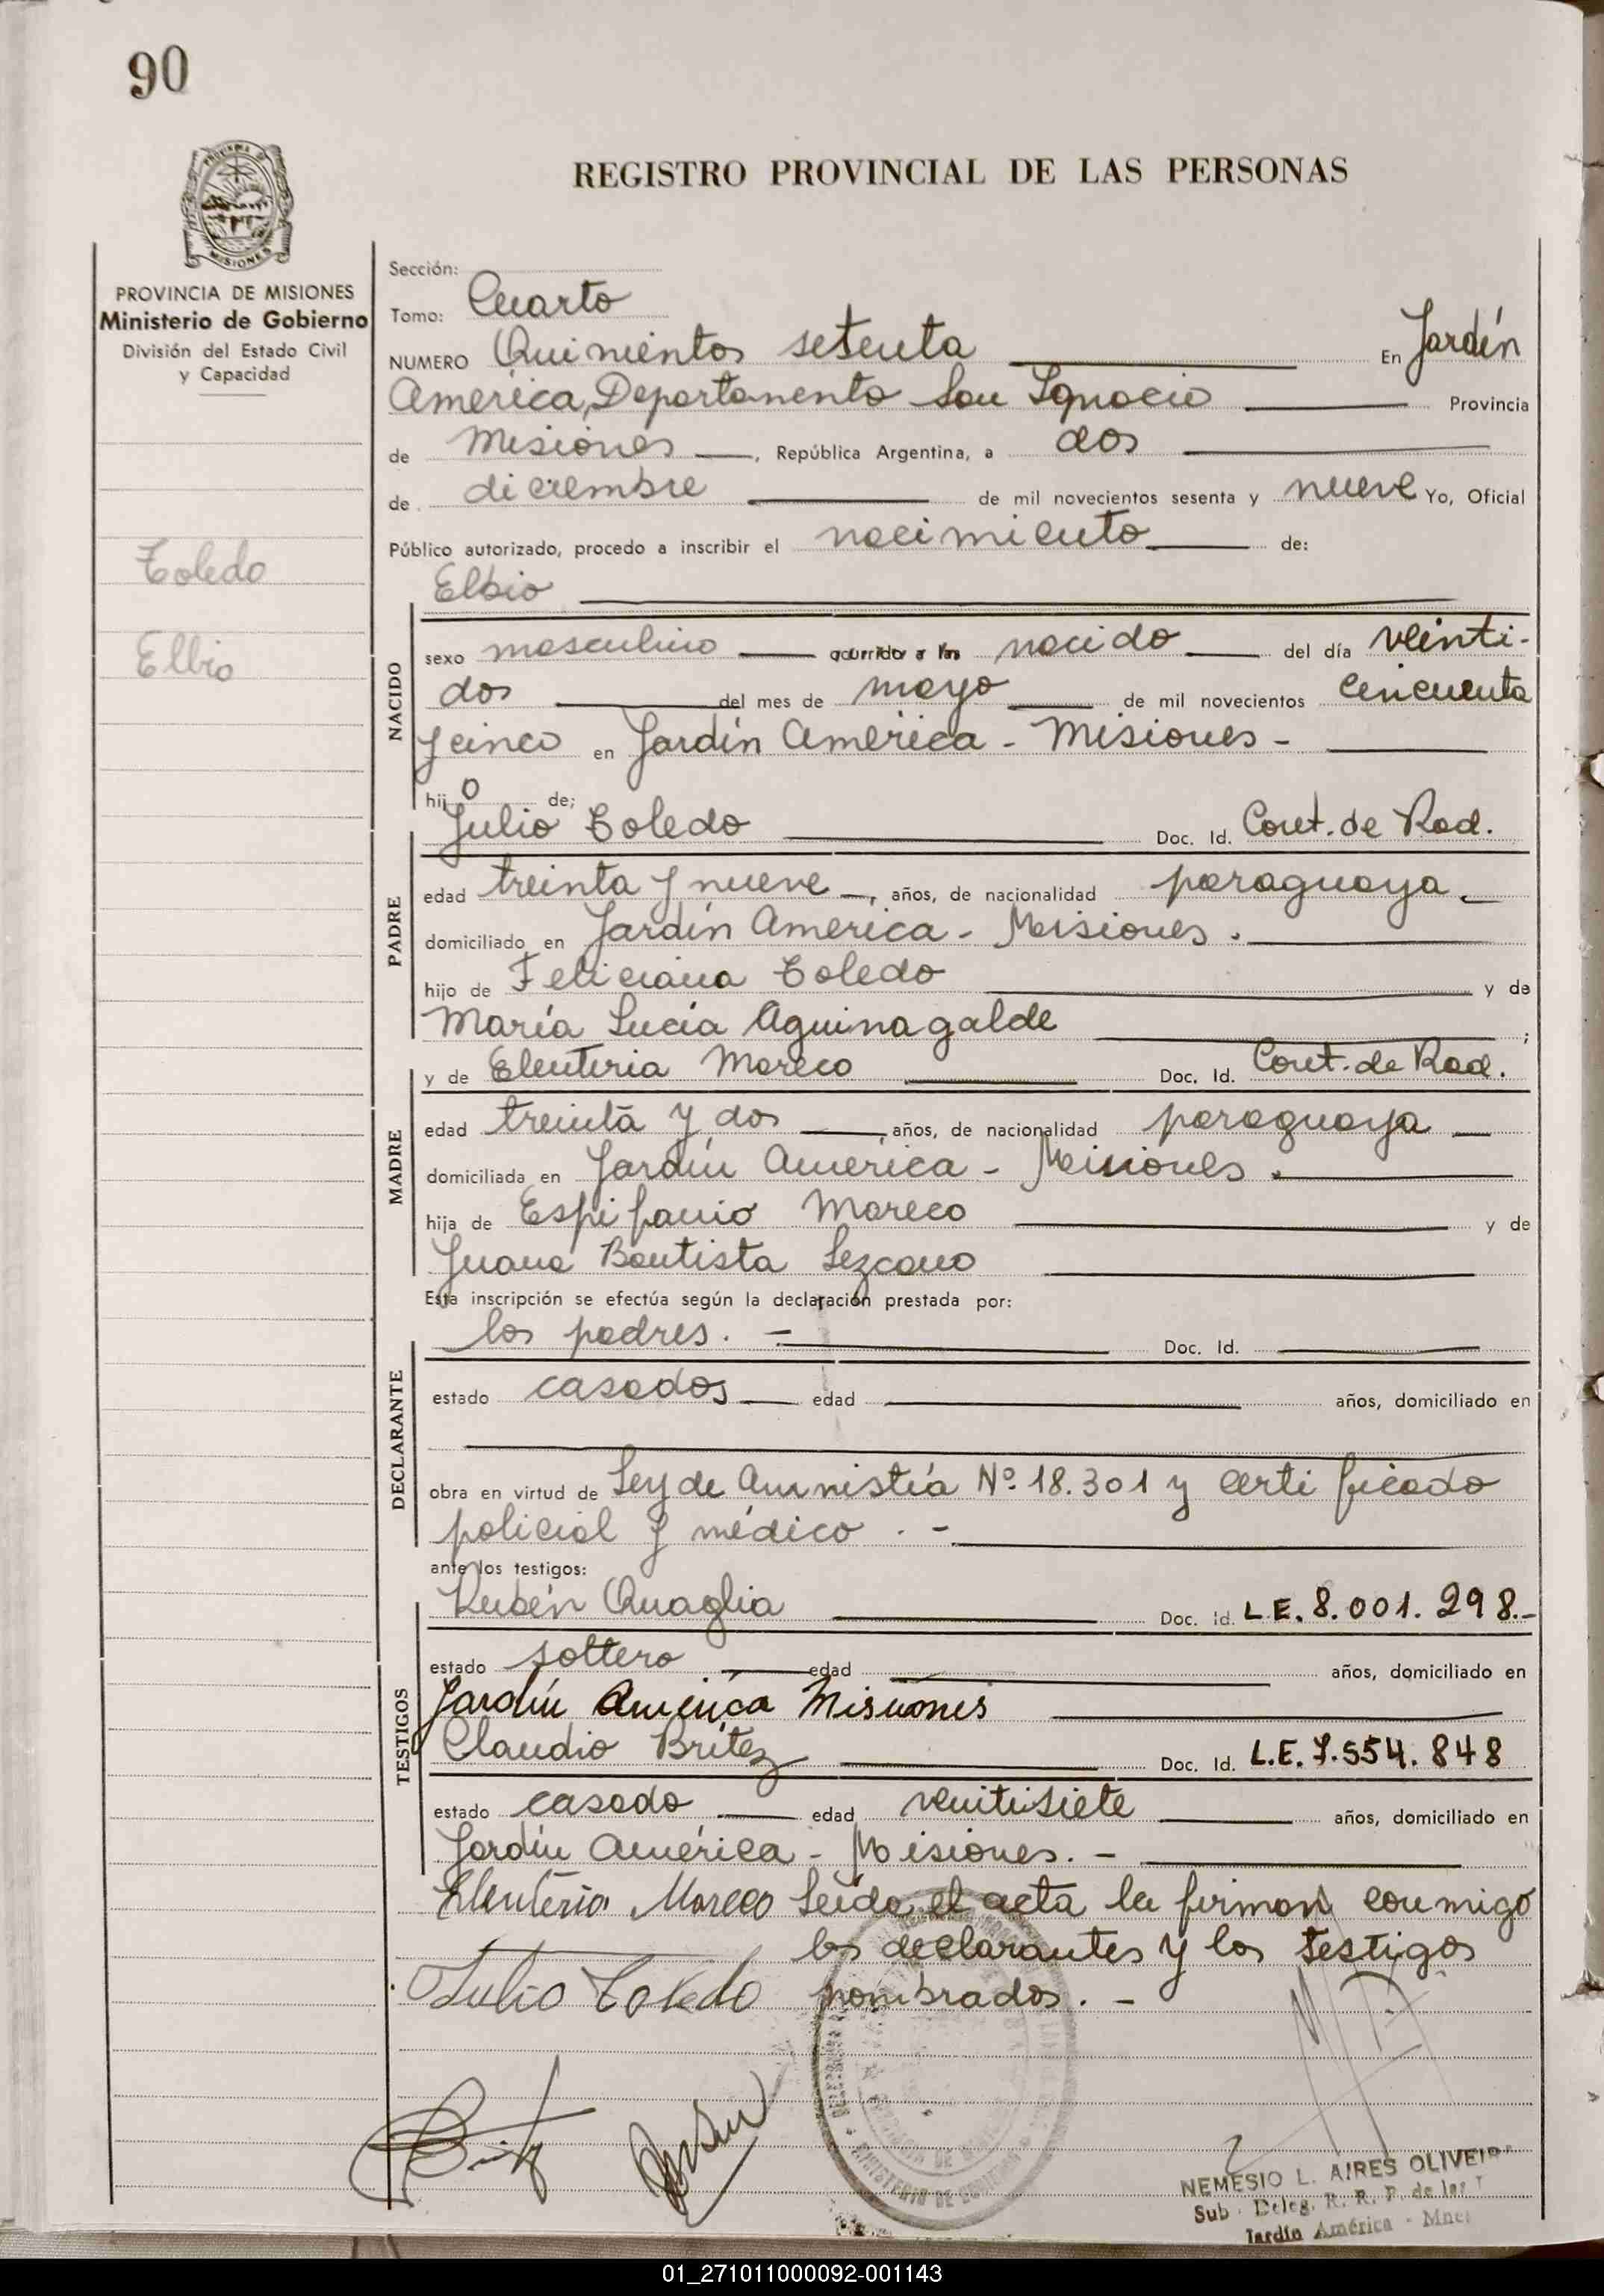 90
REGISTRO PROVINCIAL DE LAS PERSONAS
PROVINCIA DE MISIONES
Ministerio de Gobierno
División del Estado Civil
y Capacidad
Toledo
Elbio
Sección:
Tomo: Cuarto
NUMERO Quinientos setenta En Jardín
America, Departamento San Ignacio Provincia
de Misiones, República Argentina, a dos
de diciembre de mil novecientos sesenta y nueve Yo, Oficial
Público autorizado, procedo a inscribir el nacimiento de:
Elbio
NACIDO
sexo masculino nacido del día veinti-
dos del mes de mayo de mil novecientos cincuenta
y cinco en Jardín América - Misiones -
hijo de;
Julio Toledo Doc. Id. Cont. de Rad.
PADRE
edad treinta y nueve, años, de nacionalidad paraguaya
domiciliado en Jardín America - Misiones.
hijo de Feliciana Toledo y de
María Lucía Aguinagalde ;
y de Eleuteria Moreco Doc. Id. Cont. de Rad.
MADRE
edad treinta y dos, años, de nacionalidad paraguaya
domiciliada en Jardín América - Misiones.
hija de Espifanio Moreco y de
Juana Bautista Lezcano
Esta inscripción se efectúa según la declaración prestada por:
los padres. - Doc. Id.
DECLARANTE
estado casados edad años, domiciliado en
obra en virtud de Ley de Amnistía Nº 18.301 y certificado
policial y médico. -
ante los testigos:
Rubén Quaglia Doc. Id. L.E. 8.001.298.-
TESTIGOS
estado soltero edad años, domiciliado en
Jardín América Misiones
Claudio Britez Doc. Id. L.E. 7.554.848
estado casado edad veintisiete años, domiciliado en
Jardín América - Misiones. -
Eleuteria Moreco Leída el acta la firman conmigo
los declarantes y los testigos
Julio Toledo nombrados. -
NEMESIO L. AIRES OLIVEIRA
Sub. Deleg. R. R. P. de las
Jardín América - Mnes
01_271011000092-001143